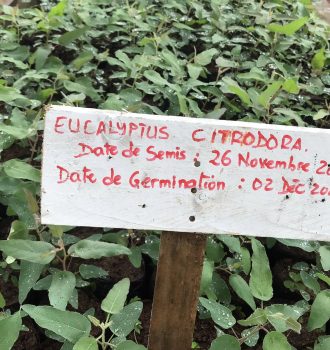 EUCALYPTUS CITRODORA.
Date de Semis : 26 Novembre 2
Date de Germination : 02 Déc 20